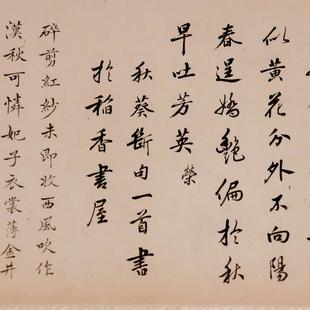 似黃花分外不向陽
春逞嬌艷偏於秋
早吐芳英榮
秋葵斷句一首書
於稻香書屋
碎剪紅紗未即妝西風吹作
漢秋可憐妃子衣裳薄金井